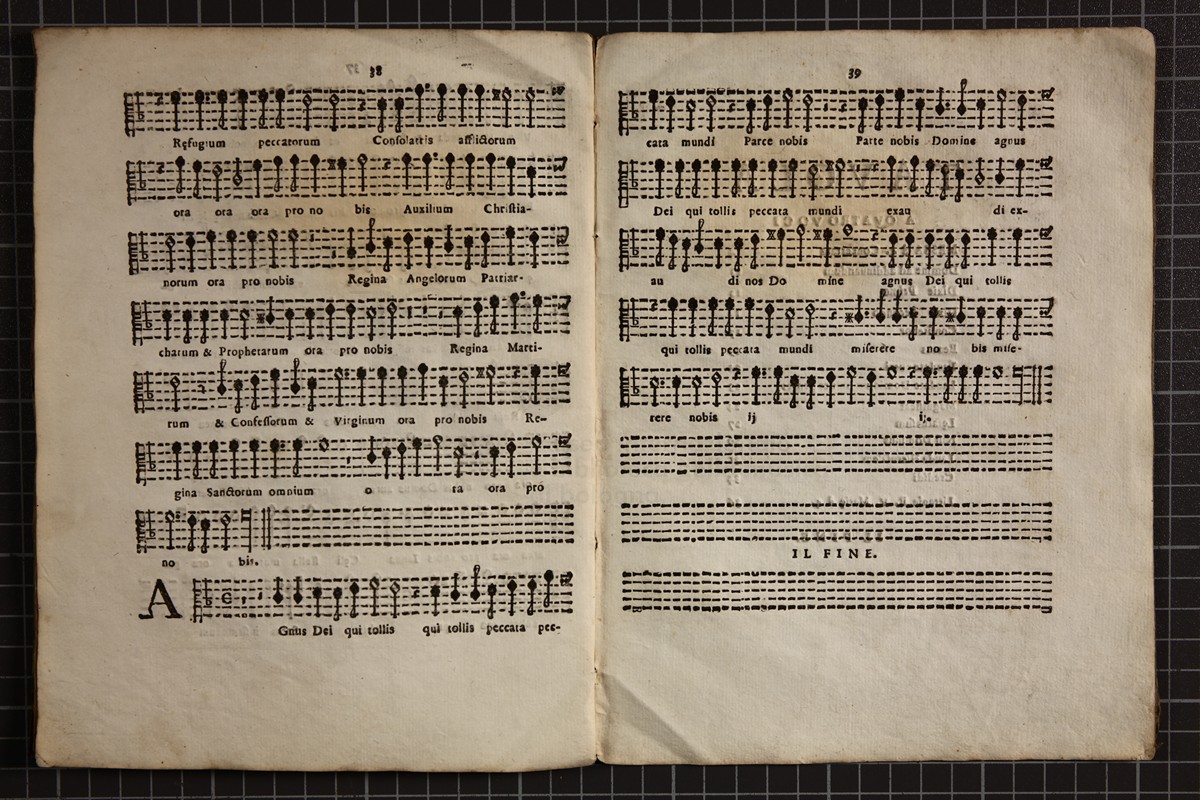 38
Refugium peccatorum Consolatris afflictorum
ora ora ora pro no bis Auxilium Christia-
norum ora pro nobis Regina Angelorum Patriar-
charum & Prophetarum ora pro nobis Regina Marti-
rum & Confessorum & Virginum ora pro nobis Re-
gina Sanctorum omnium o ra ora pro
no bis.
A Gnus Dei qui tollis qui tollis peccata pec-
39
cata mundi Parce nobis Parte nobis Domine agnus
Dei qui tollis peccata mundi exau di ex-
au di nos Do mine agnus Dei qui tollis
qui tollis peccata mundi miserere no bis mise-
rere nobis ij ij.
IL FINE.